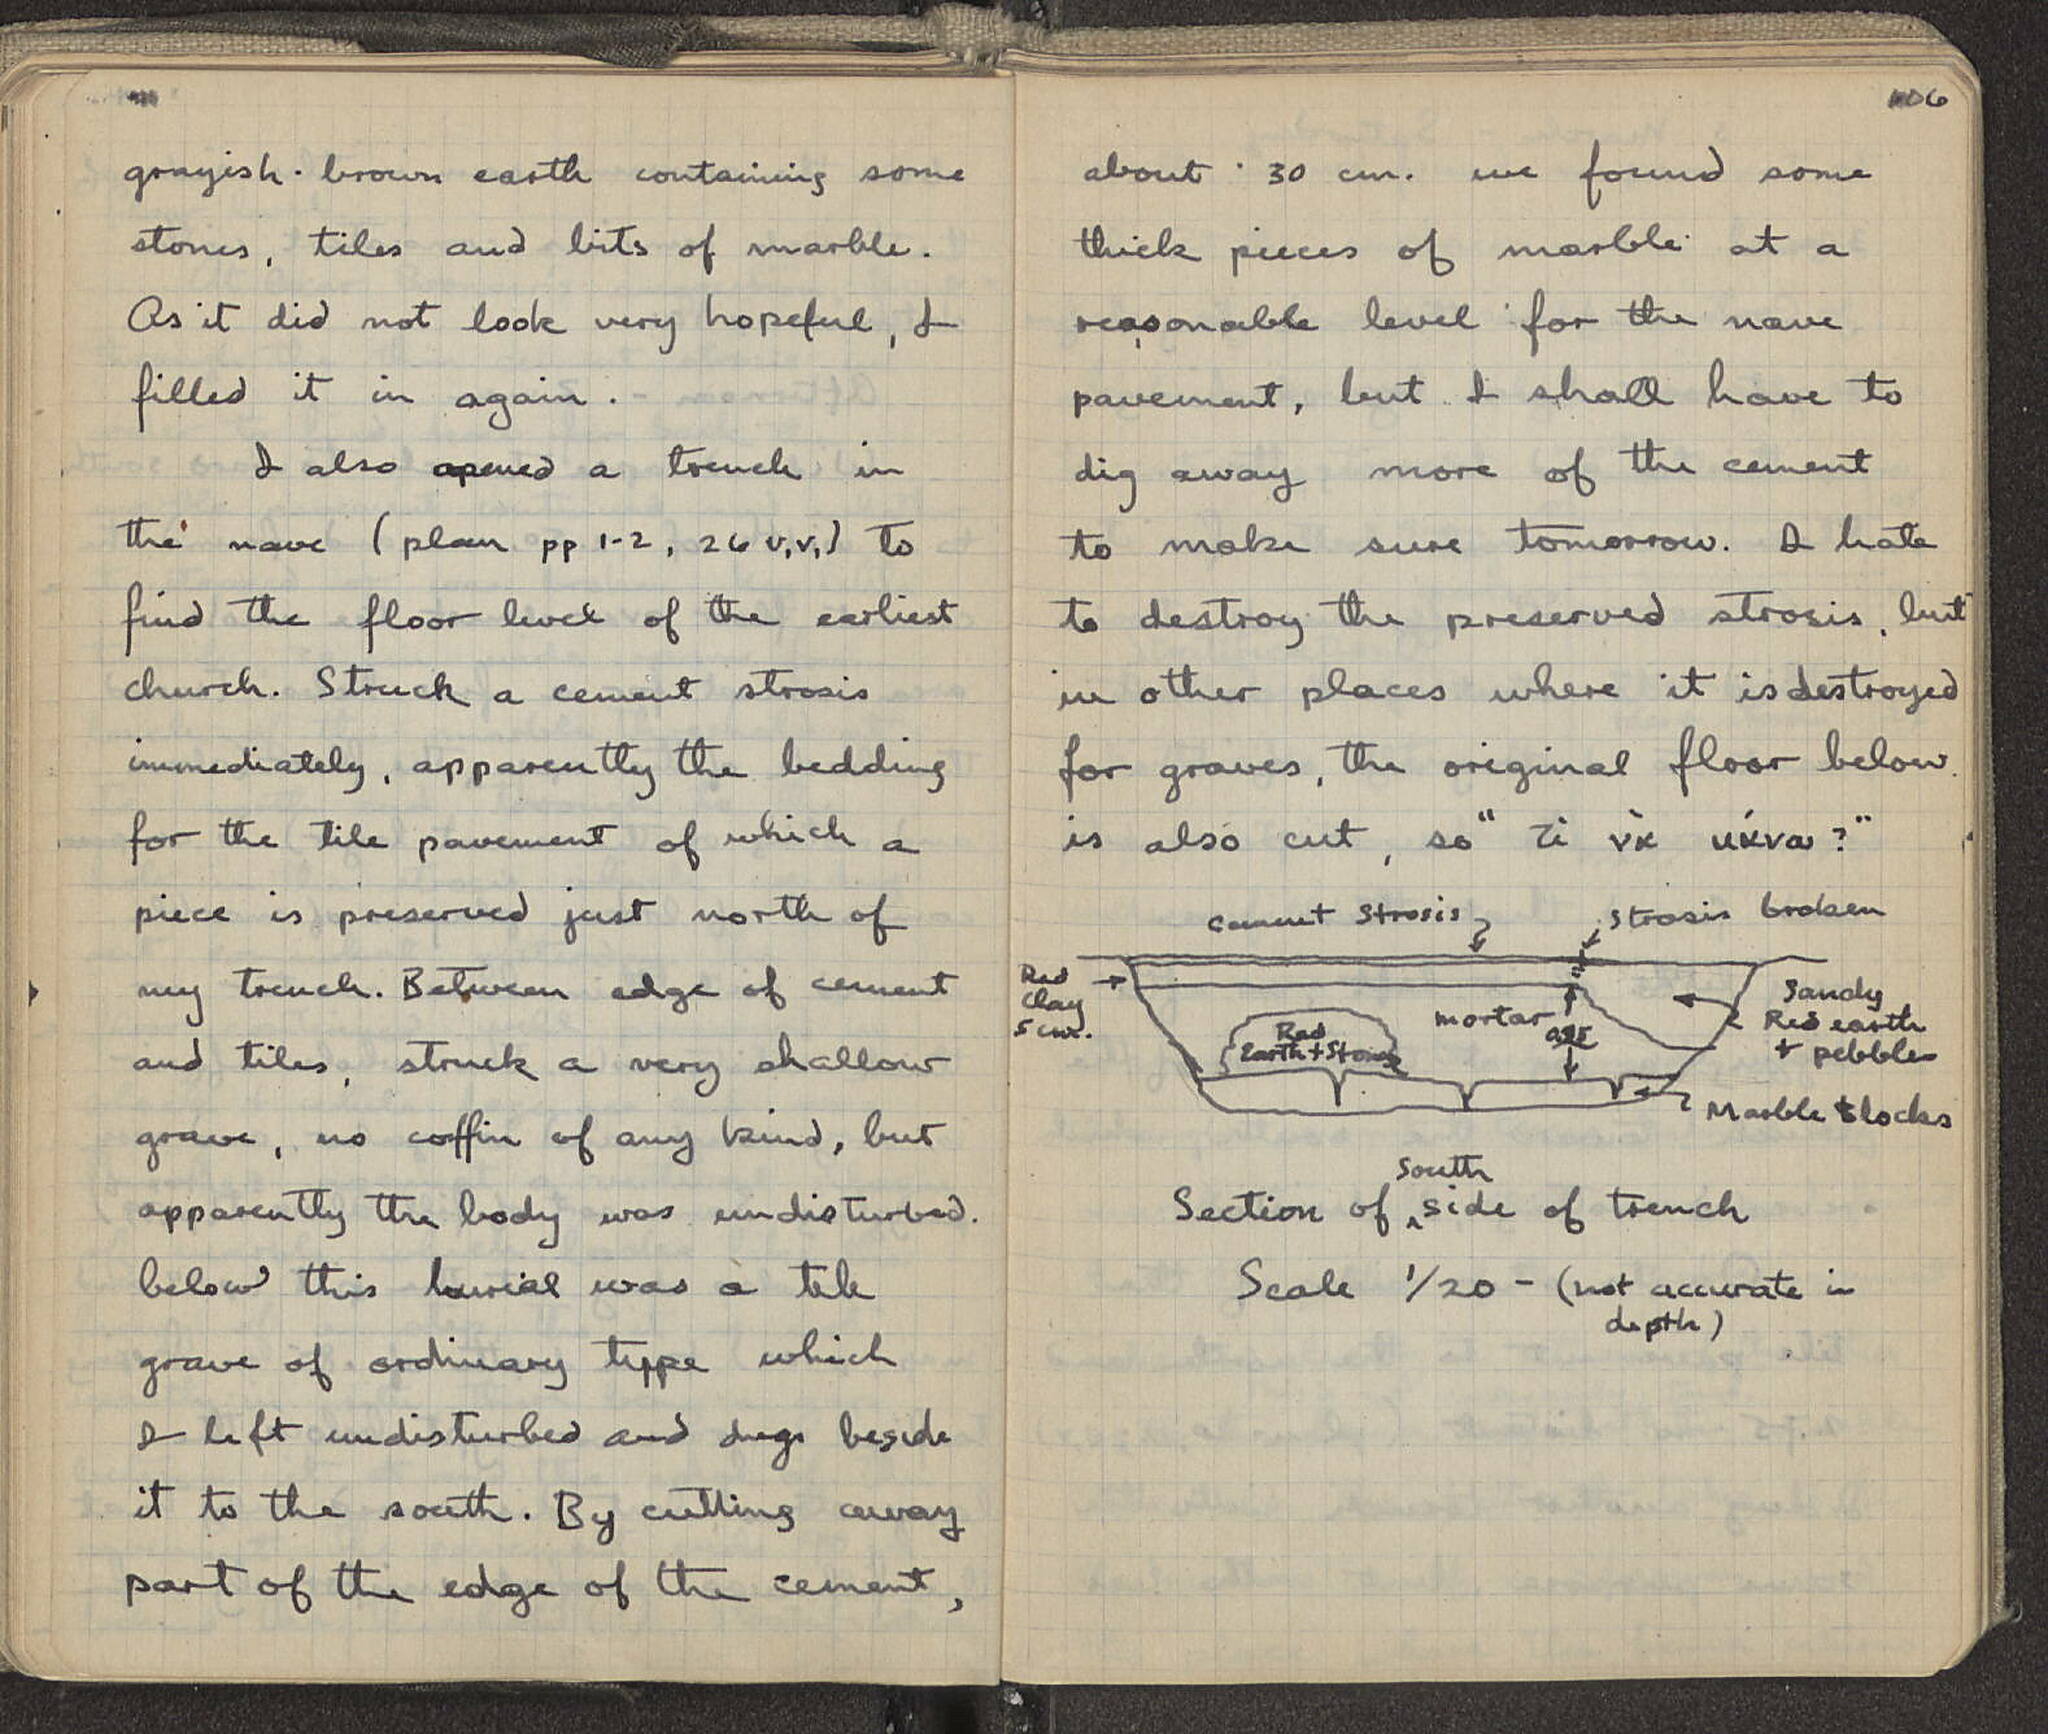 grayish-brown earth containing some
stones, tiles and bits of marble.
As it did not look very hopeful, I
filled it in again.
I also opened a trench in
the nave (plan pp 1-2, 26 v,v,) to
find the floor level of the earliest
church. Struck a cement strosis
immediately, apparently the bedding
for the tile pavement of which a
piece is preserved just north of
my trench. Between edge of cement
and tiles, struck a very shallow
grave, no coffin of any kind, but
apparently the body was undisturbed.
below this burial was a tile
grave of ordinary type which
I left undisturbed and dug beside
it to the south. By cutting away
part of the edge of the cement,
106
about 30 cm. we found some
thick pieces of marble at a
reasonable level for the nave
pavement, but I shall have to
dig away more of the cement
to make sure tomorrow. I hate
to destroy the preserved strosis, but
in other places where it is destroyed
for graves, the original floor below
is also cut, so "τί
cement strosis
strosis broken
Red
clay
5 cm.
mortar
Red
Earth + Stones
Sandy
Red earth
+ pebbles
Marble blocks
Section of south side of trench
Scale 1/20 - (not accurate in
depth)